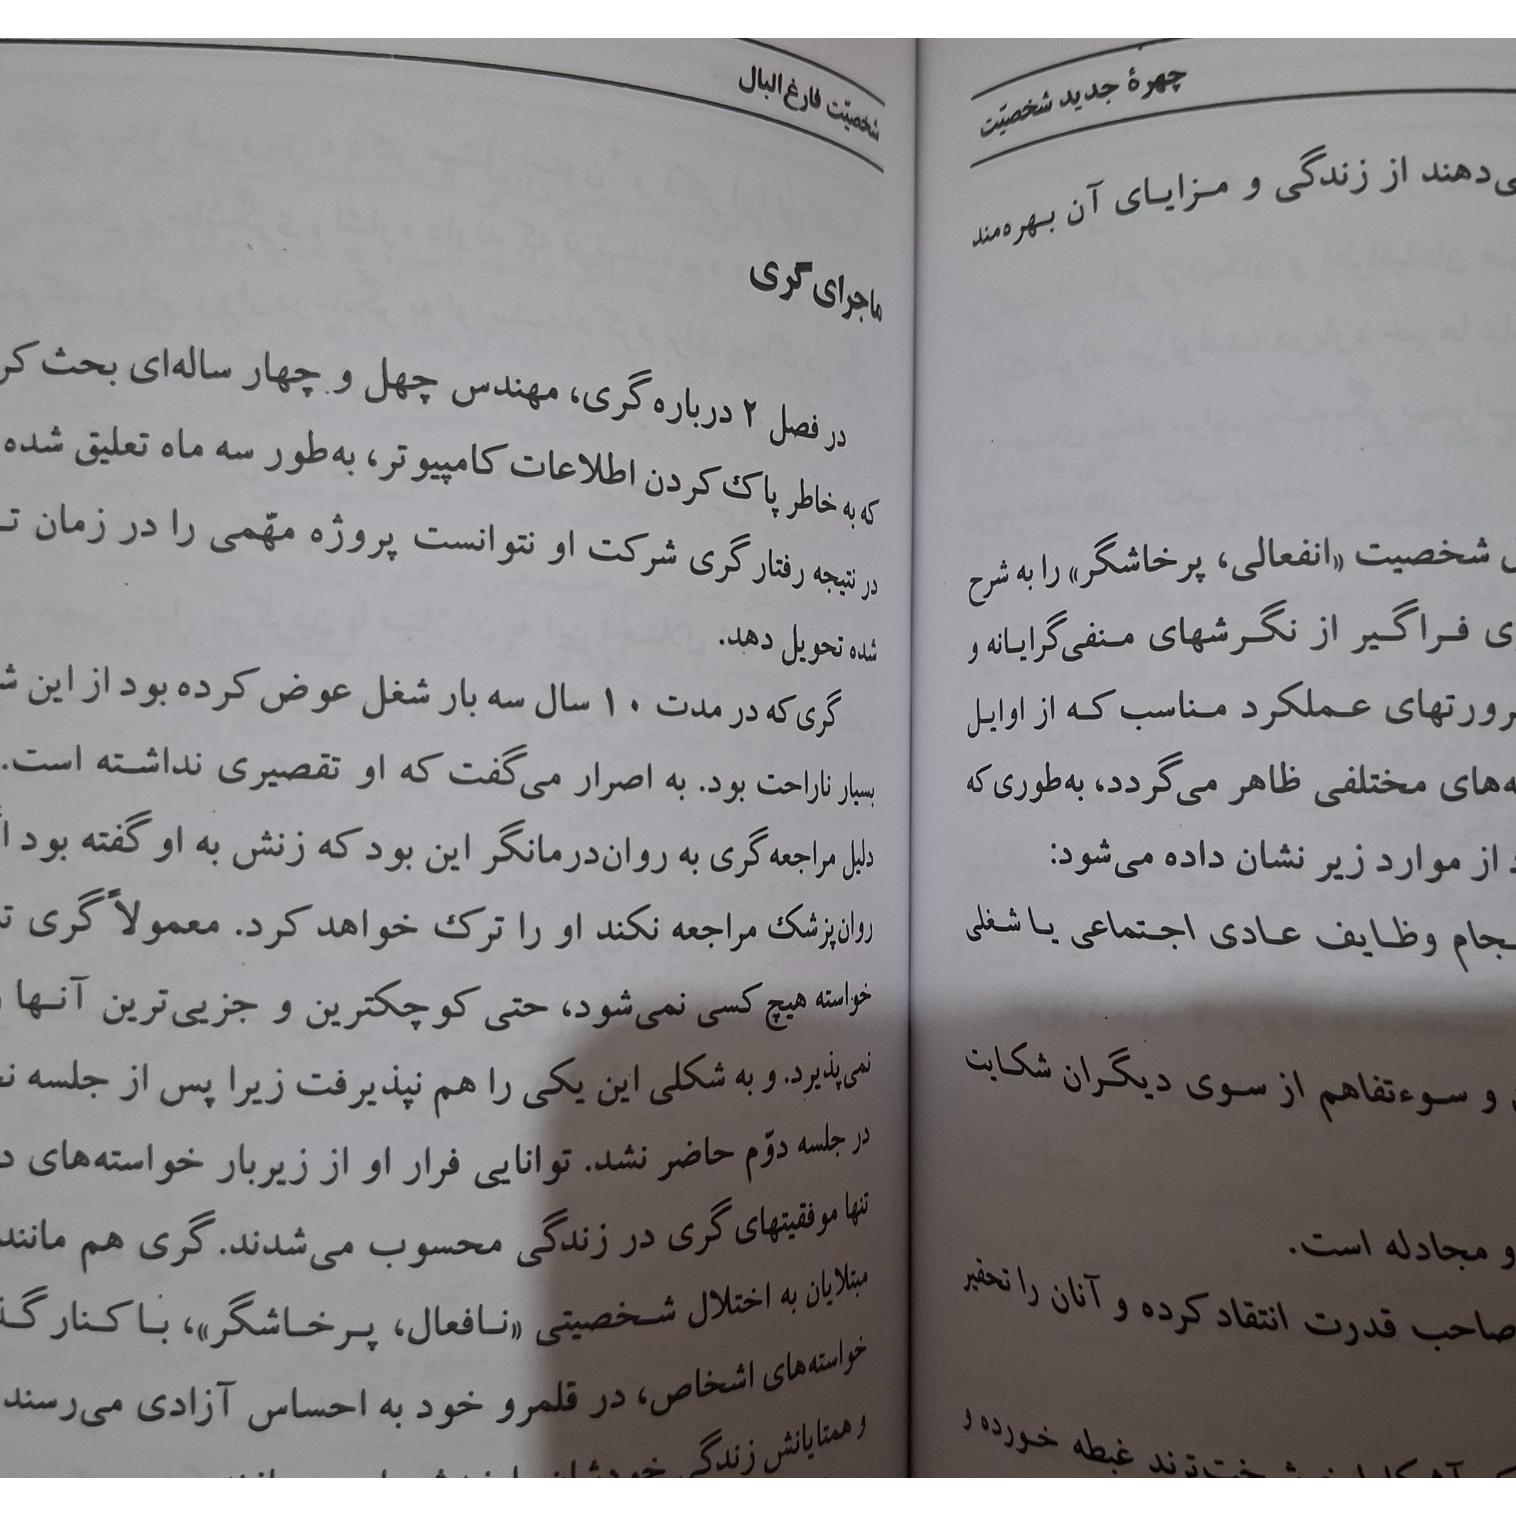 چهرهٔ جدید شخصیّت
می‌دهند از زندگی و مزایای آن بهره‌مند
شخصیت «انفعالی، پرخاشگر» را به شرح
فراگیر از نگرشهای منفی‌گرایانه و
عملکرد مناسب که از اوایل
مختلفی ظاهر می‌گردد، به‌طوری که
از موارد زیر نشان داده می‌شود:
وظایف عادی اجتماعی یا شغلی
و سوءتفاهم از سوی دیگران شکایت
و مجادله است.
صاحب قدرت انتقاد کرده و آنان را تحقیر
غبطه خورده و
شخصیّت فارغ‌البال
ماجرای گری
در فصل ۲ درباره گری، مهندس چهل و چهار ساله‌ای بحث
که به خاطر پاک کردن اطلاعات کامپیوتر، به‌طور سه ماه تعلیق شده
در نتیجه رفتار گری شرکت او نتوانست پروژه مهّمی را در زمان
شده تحویل دهد.
گری که در مدت ۱۰ سال سه بار شغل عوض کرده بود از این
بسیار ناراحت بود. به اصرار می‌گفت که او تقصیری نداشته است.
دلیل مراجعه گری به روان‌درمانگر این بود که زنش به او گفته بود
روان‌پزشک مراجعه نکند او را ترک خواهد کرد. معمولاً گری
خواسته هیچ کسی نمی‌شود، حتی کوچکترین و جزیی‌ترین آنها
نمی‌پذیرد. و به شکلی این یکی را هم نپذیرفت زیرا پس از جلسه
در جلسه دوّم حاضر نشد. توانایی فرار او از زیربار خواسته‌های
تنها موفقیتهای گری در زندگی محسوب می‌شدند. گری هم مانند
مبتلایان به اختلال شخصیتی «نافعال، پرخاشگر»، با کنار
خواسته‌های اشخاص، در قلمرو خود به احساس آزادی می‌رسند
و همتایانش زندگی خودشان